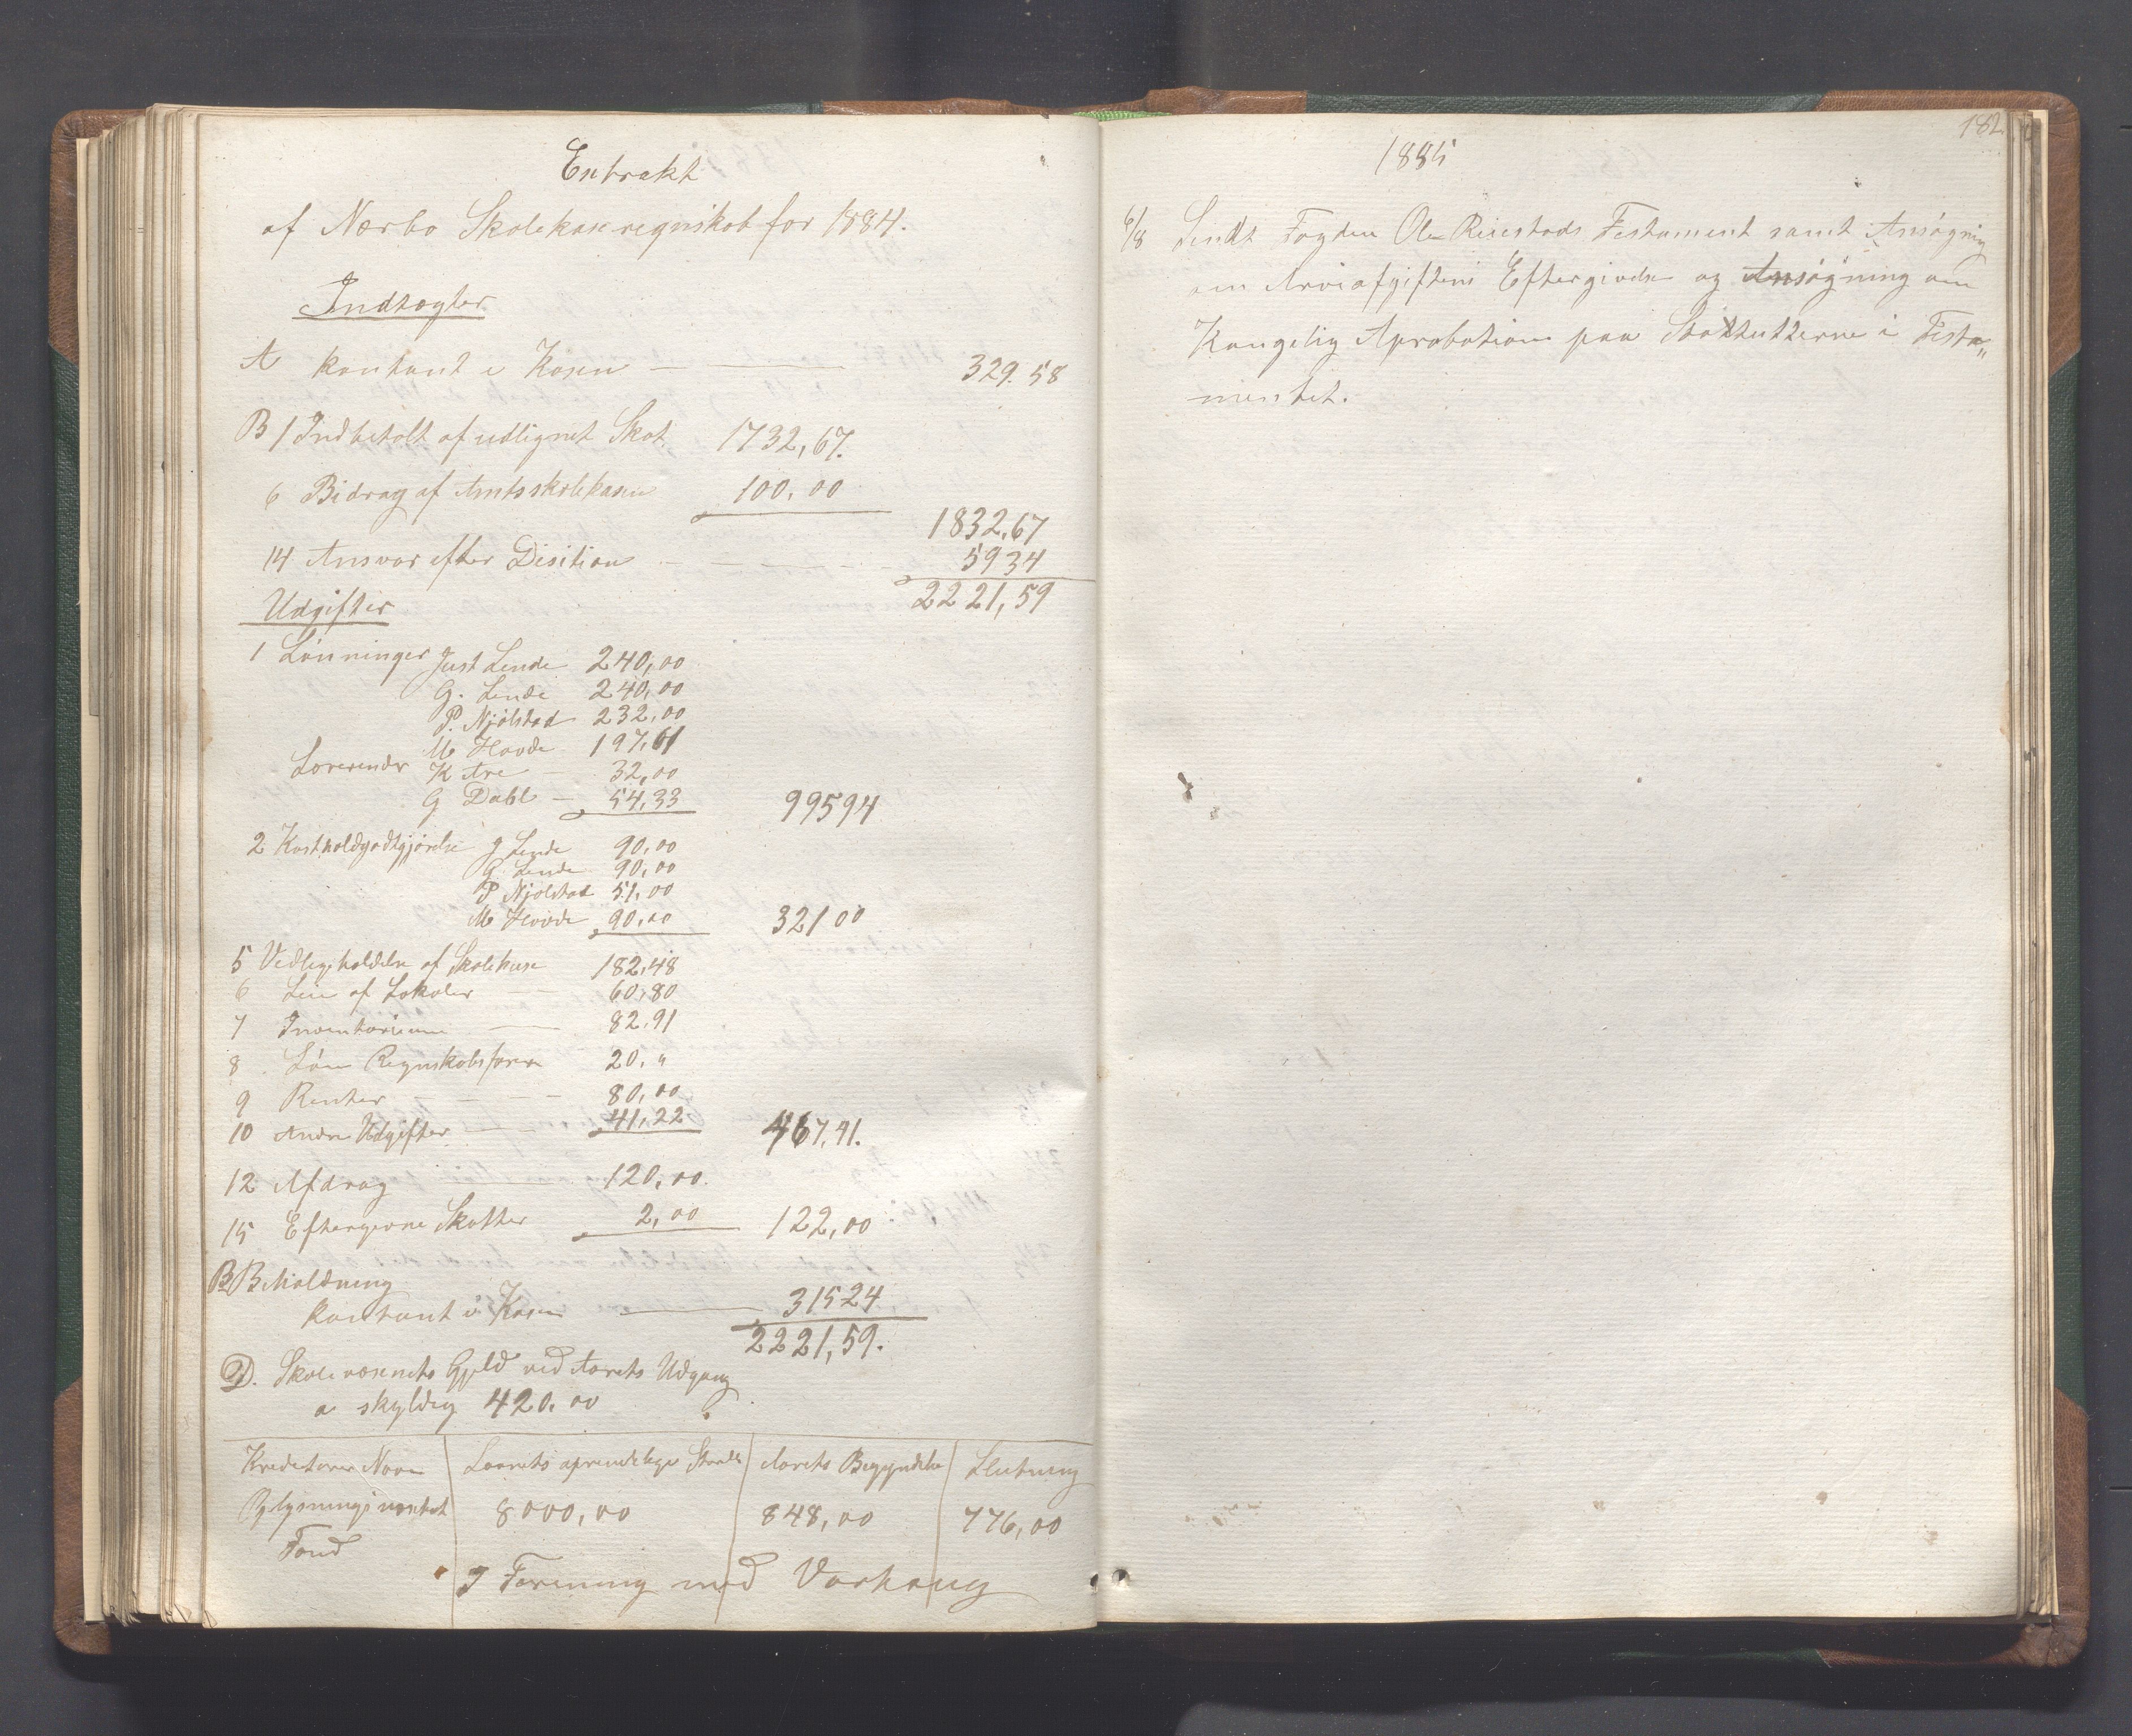 Extrakt
af Nærbo Skolekasseregnskab for 1884.
Indtægter
A kontant i Kasen 329.58
B 1 Indbetalt af udlignet Skat 1732,67.
6 Bidrag af Amtsskolekasen 100,00
1832,67
14 Ansvar efter Disition 5934
2221,59
Udgifter
1 Lønninger Just Lende 240,00
G. Lende 240,00
P. Njølstad 232,00
M Hovde 197,61
Lærerinder K Are 32,00
G Dahl 54,33 99594
2 Kostholdgodtgjørelse J Lende 90,00
G. Lende 90,00
P Njølstad 51,00
M Hovde 90,00 321 00
5 Vedligeholdelse af Skolehuse 182,48
6 Leie af Lokaler 60,80
7 Inventarium 82.91
8 Løn Regnskabsfører 20, "
9 Renter 80,00
10 Andre Udgifter 41,22 467,41.
12 Afdrag 120,00.
15 Eftergivne Skatter 2,00 122,00
B Beholdning
kontant i Kasen 31524
2221,59.
D. Skolevæsenets Gjeld ved Aarets Udgang
a skyldig 420.00
Kreditorer Navn Laanets oprindelige Aarets Begyndelse Slutning
Oplysningsvæsenet 8000,00 848,00 776,00
Fond
I Forening med Varhaug
182
1885
6/8 Sendt Fogden Ole Reiestads Testament samt Ansøgning
om Arveafgiftens Eftergivelse og Ansøgning om
Kongelig Aprobation paa Statutterne i Testa„
mentet.